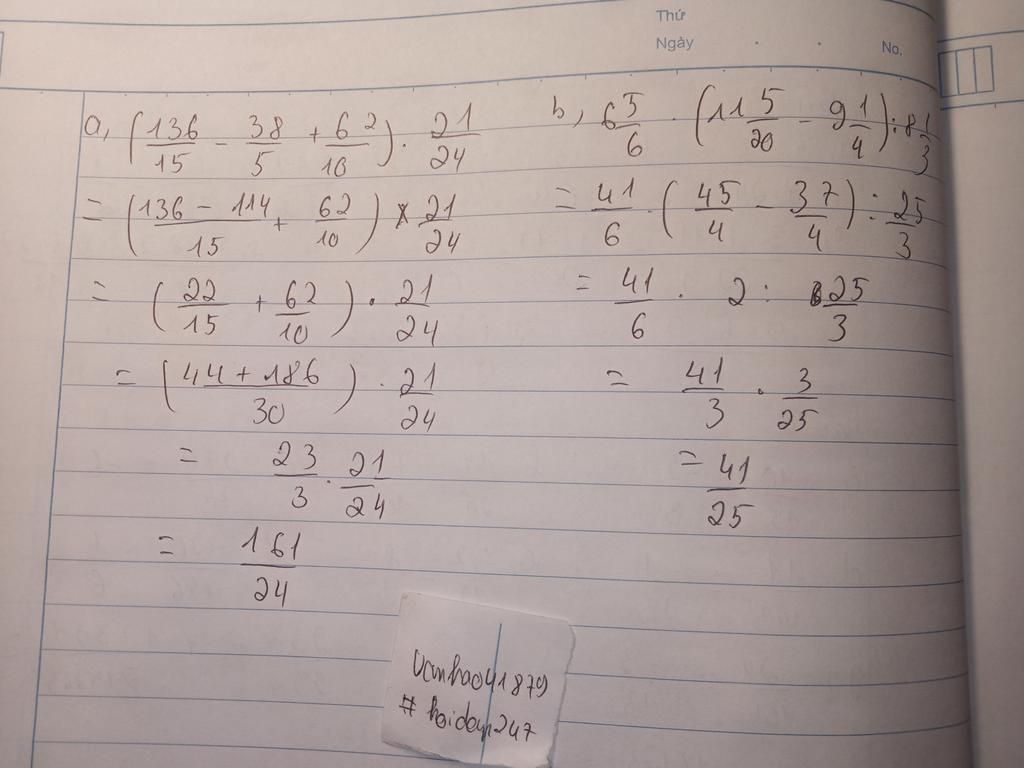 Thứ
Ngày . . No.
a, (136/15 - 38/5 + 62/10) . 21/24
= (136 - 114/15 + 62/10) x 21/24
= (22/15 + 62/10) . 21/24
= (44 + 186/30) . 21/24
= 23/3 . 21/24
= 161/24
b, 6 5/6 . (11 5/20 - 9 1/4) : 8 1/3
= 41/6 . (45/4 - 37/4) : 25/3
= 41/6 . 2 : 25/3
= 41/3 . 3/25
= 41/25